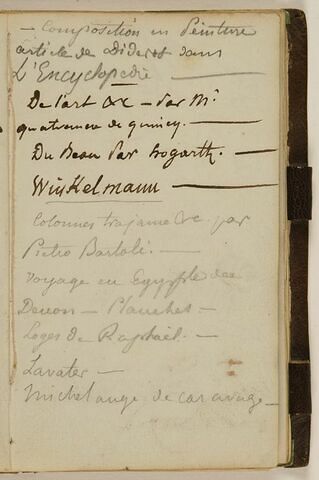 – Composition en Peinture
article de Diderot dans
L'Encyclopedie —
De l'art &c – Par Mr
quatremere de quincy. —
Du Beau Par hogarth. —
Winkelmann —
Colonnes trajane &c par
Pietro Bartoli. —
Voyage en Egypte de
Denon – Planches –
Loges de Raphael. —
Lavater –
Michelange de caravage –